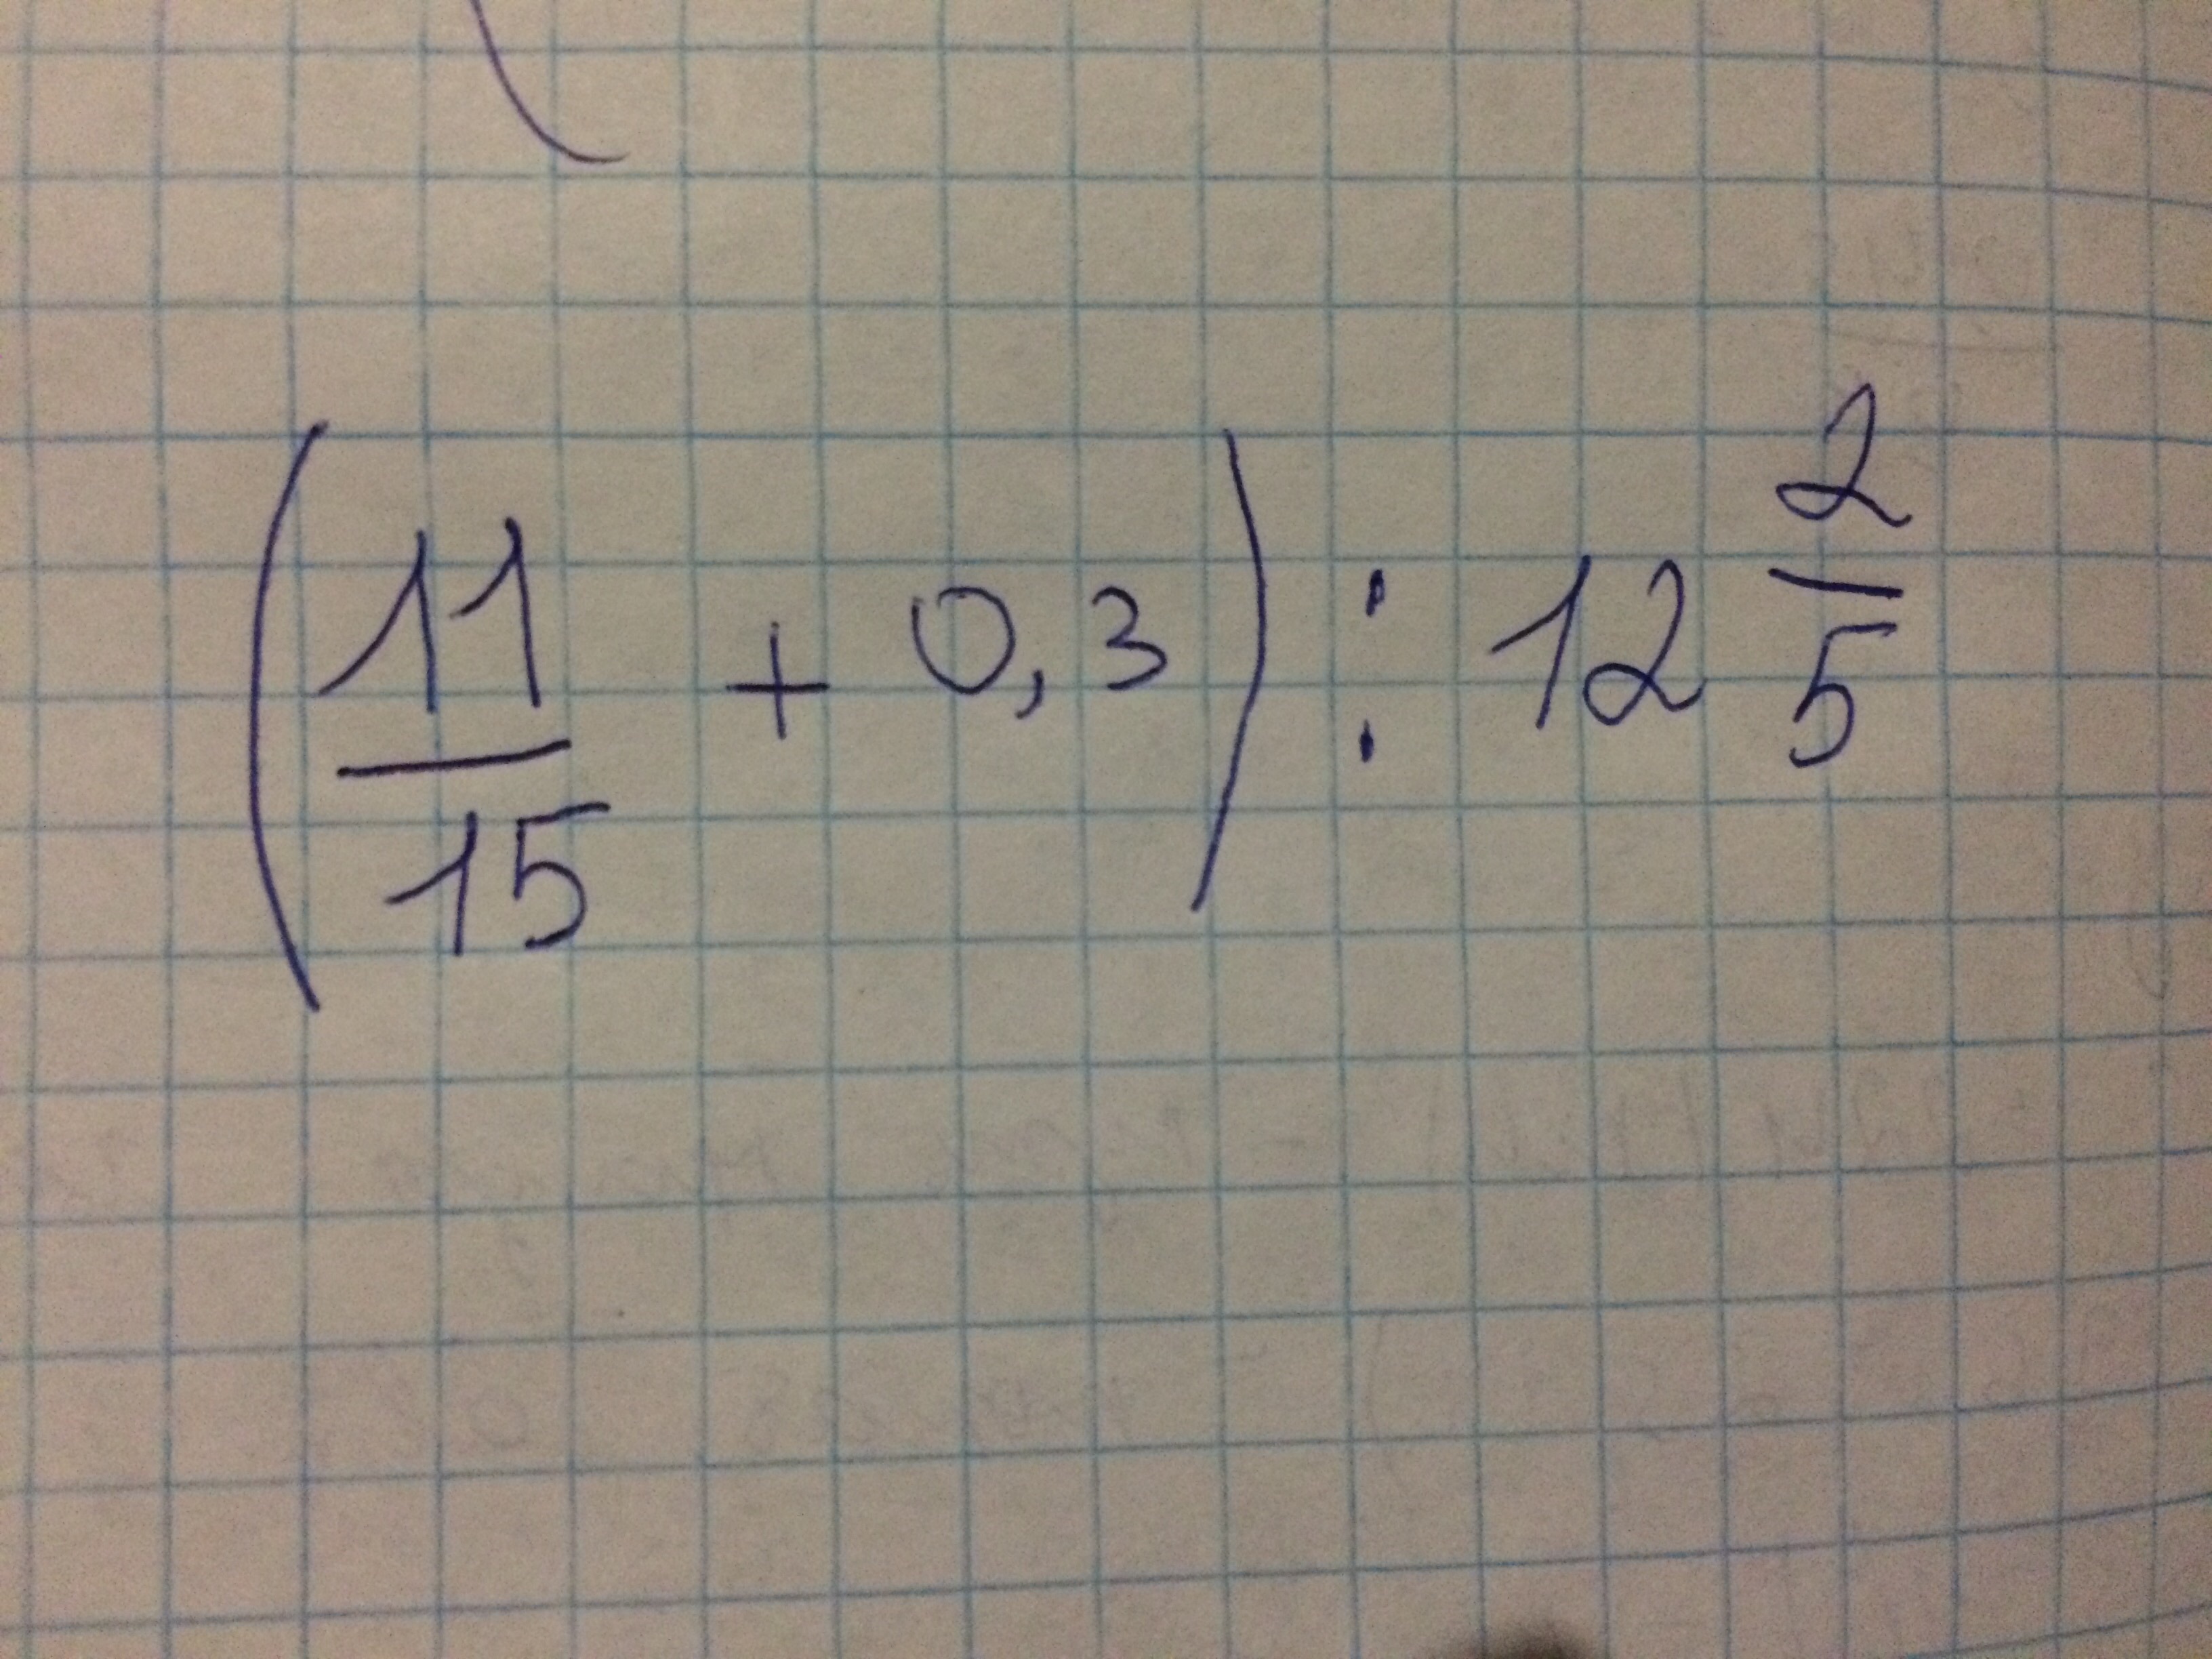 (11/15 + 0,3) : 12 2/5